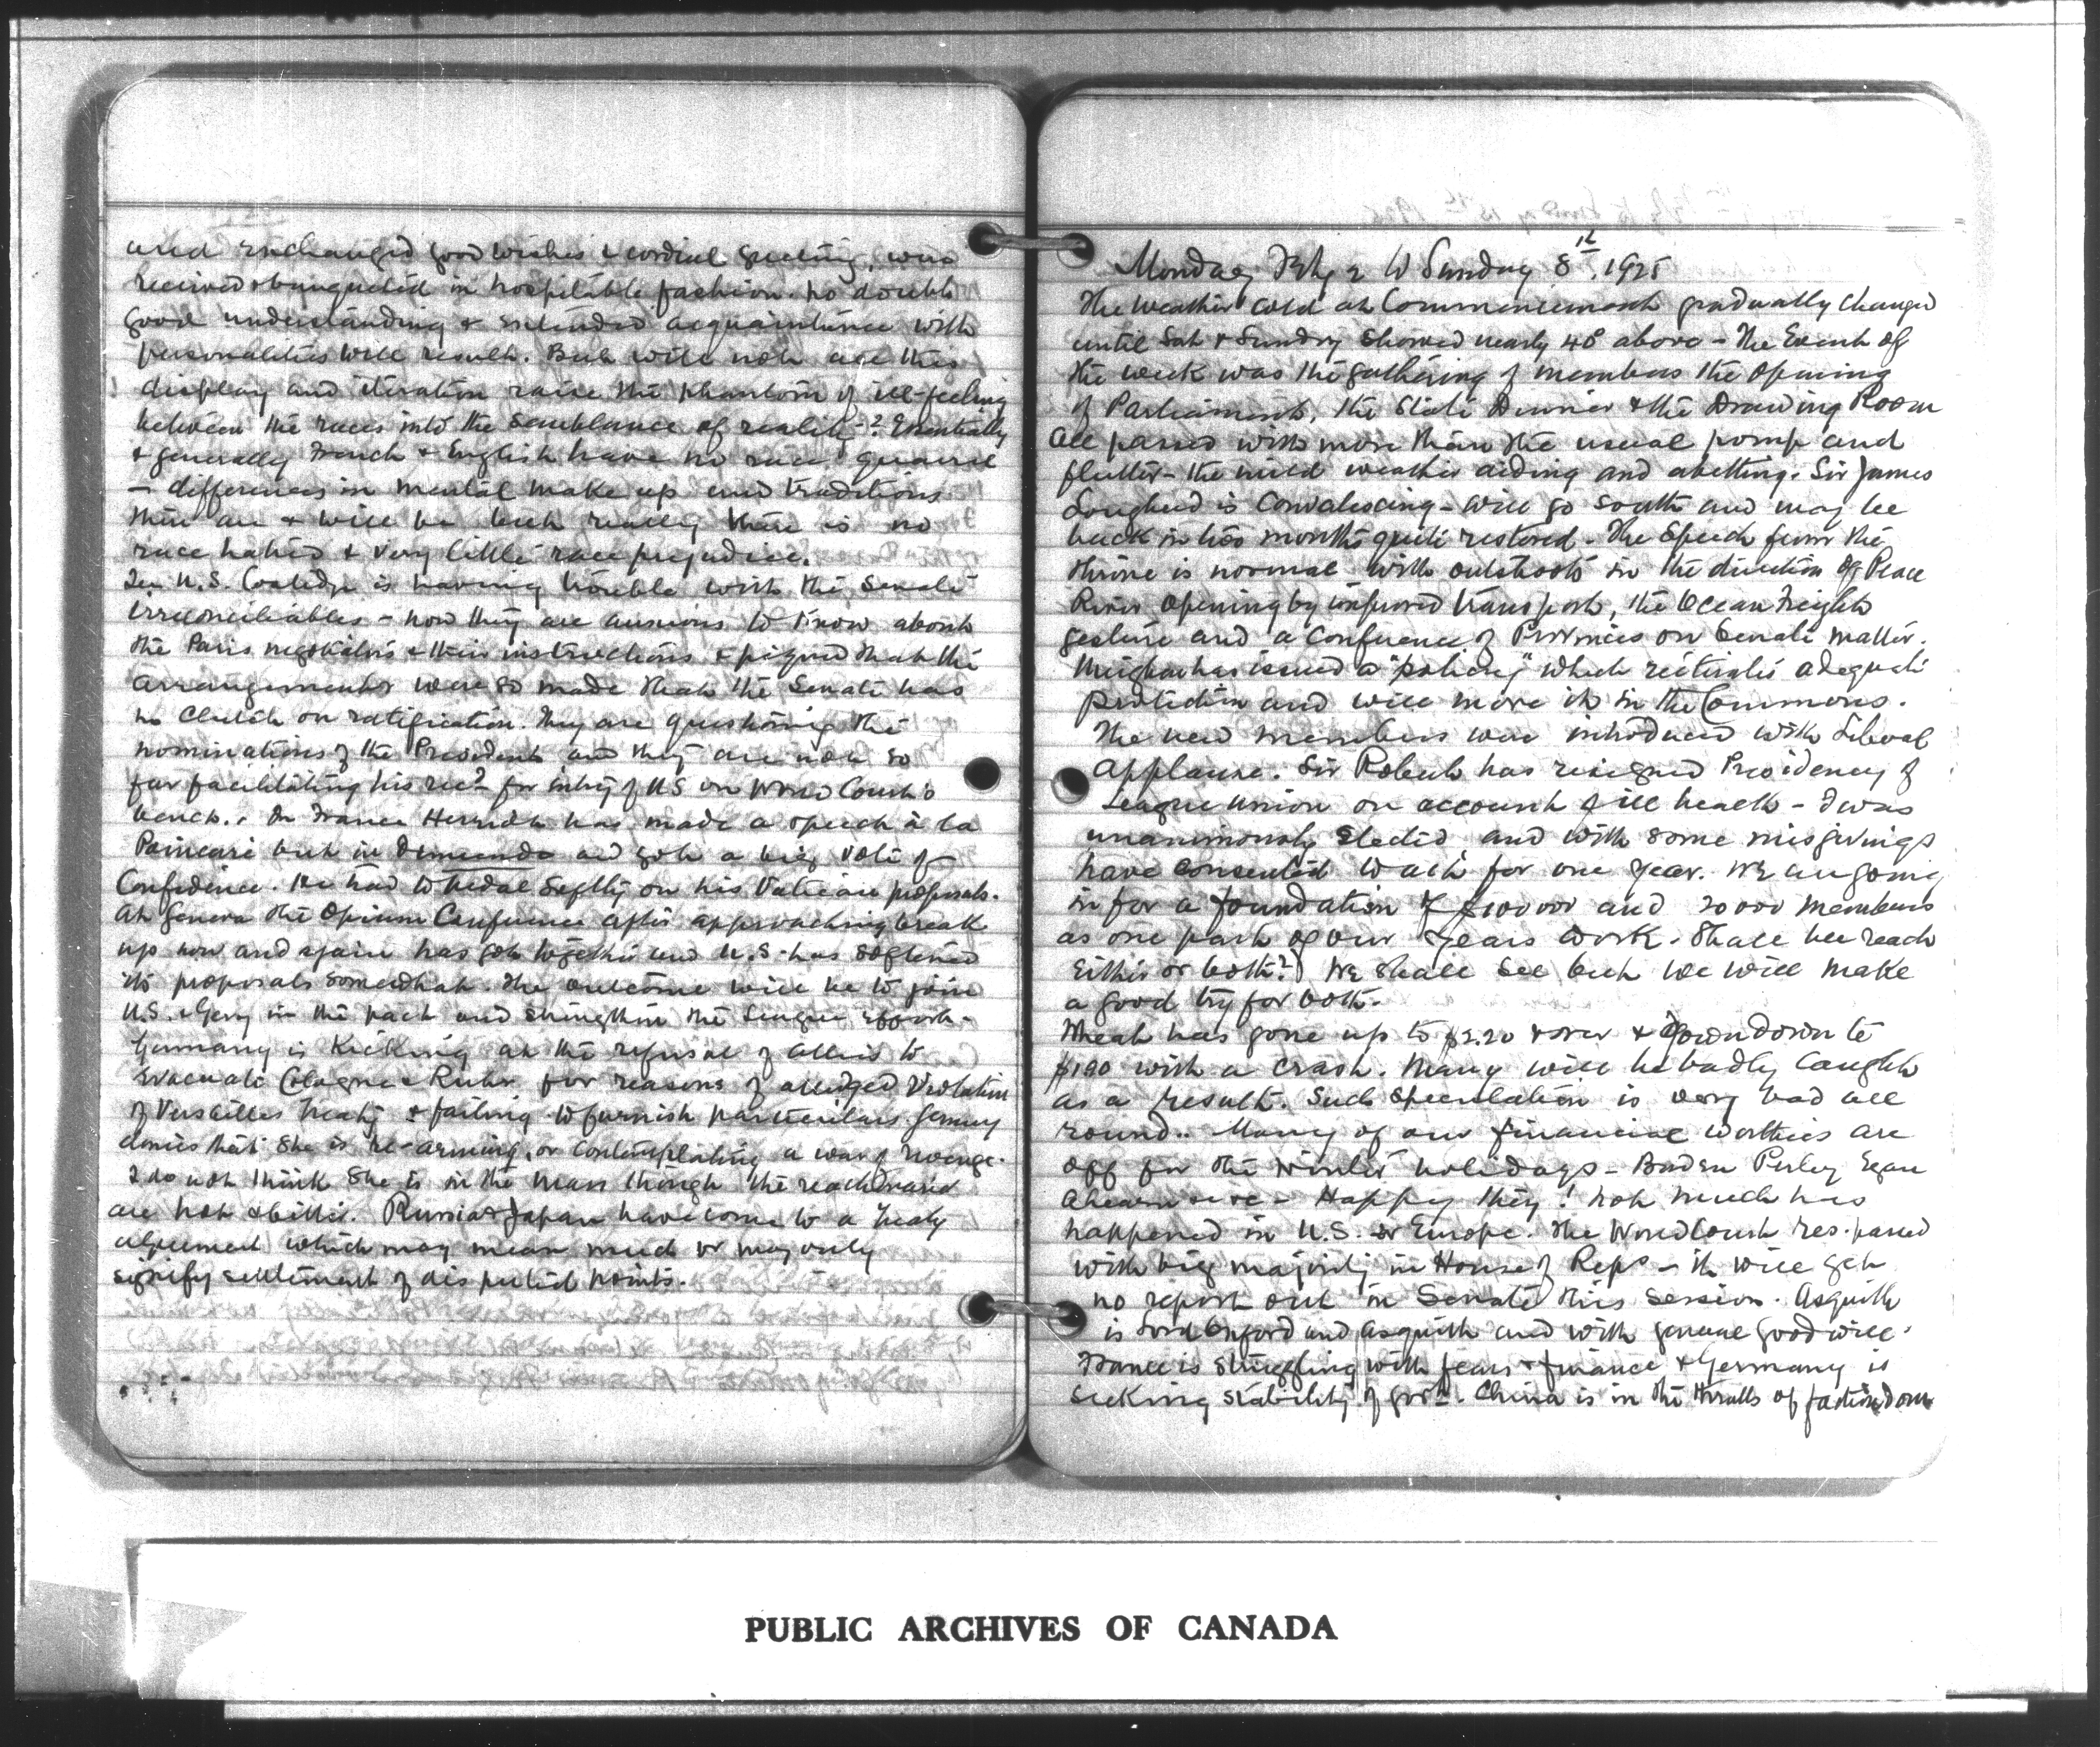 and exchanged good wishes & cordial greeting, were
received & banqueted in hospitable fashion. No doubt
good understanding & extended acquaintance with
personalities will result. But will not all this
display and iteration raise the phantom of ill-feeling
between the races into the semblance of reality? Essentially
& generally French & English have no race quarrel
— differences in mental make up and traditions
there are & will be but really there is no
race hatred & very little race prejudice.
In U.S. Coolidge is having trouble with the Senate
irreconcilables - now they are anxious to know about
the Paris negotiations & their instructions & piqued that the
arrangements were so made that the Senate has
no clutch on ratification. They are questioning the
nominations of the President and they are not so
far facilitating his rec.n for entry of US on World Court's
bench. In France Herriot has made a speech à la
Poincaré but in and got a big vote of
Confidence. He had to pedal softly on his Vatican proposals.
At Geneva the Opium Conference after approaching break
up now and again has got together and U.S. has softened
its proposals somewhat. The outcome will be to join
U.S. & Gery in the pact and strengthen the League effort -
Germany is kicking at the refusal of allies to
evacuate Cologne & Ruhr for reasons of alleged violation
of Versailles treaty & failing to furnish particulars. Germy
denies that she is re-arming, or contemplating a war of revenge.
I do not think she is in the mass though the
are hot & bitter. Russia & Japan have come to a treaty
agreement which may mean much or may only
signify settlement of disputed points.
Monday Feby 2 to Sunday 8th. 1925
The weather cold at Commencement gradually changed
until Sat & Sunday showed nearly 40° above - The Event of
the week was the gathering of members the Opening
of Parliament, the State Dinner & the Drawing Room
all passed with more than the usual pomp and
flutter - the mild weather aiding and abetting. Sir James
Lougheed is Convalescing - will go South and may be
back in two months quite restored. The Speech from the
throne is normal with outshoots in the direction of Peace
River opening by improved transport, the Ocean Freights
gesture and a Conference of Provinces on Senate matter.
Meighen has issued a "policy" which reiterates adequate
protection and will move it in the Commons.
The new members were introduced with Liberal
applause. Sir Robert has resigned Presidency of
League Union on account of ill health - I was
unanimously elected and with some misgivings
have consented to act for one year. We are going
in for a foundation of $100000 and 20000 members
as one part of our years work. Shall we reach
either or both? We shall see but we will make
a good try for both.
Wheat has gone up to $2.20 & over & gone down to
$190 with a crash. Many will be badly caught
as a result. Such speculation is very bad all
round.. Many of our financial worthies are
off for the winter holidays - Perley Egan
Ahearn &c &c - Happy they! Not much has
happened in U.S. or Europe. The World Court res. passed
with big majority in House of Reps - it will get
no report out in Senate this session. Asquith
is Lord Oxford and Asquith and with general good will.
France is struggling with fears & finance & Germany is
seeking stability of govt. China is in the thralls of factiondom
PUBLIC ARCHIVES OF CANADA